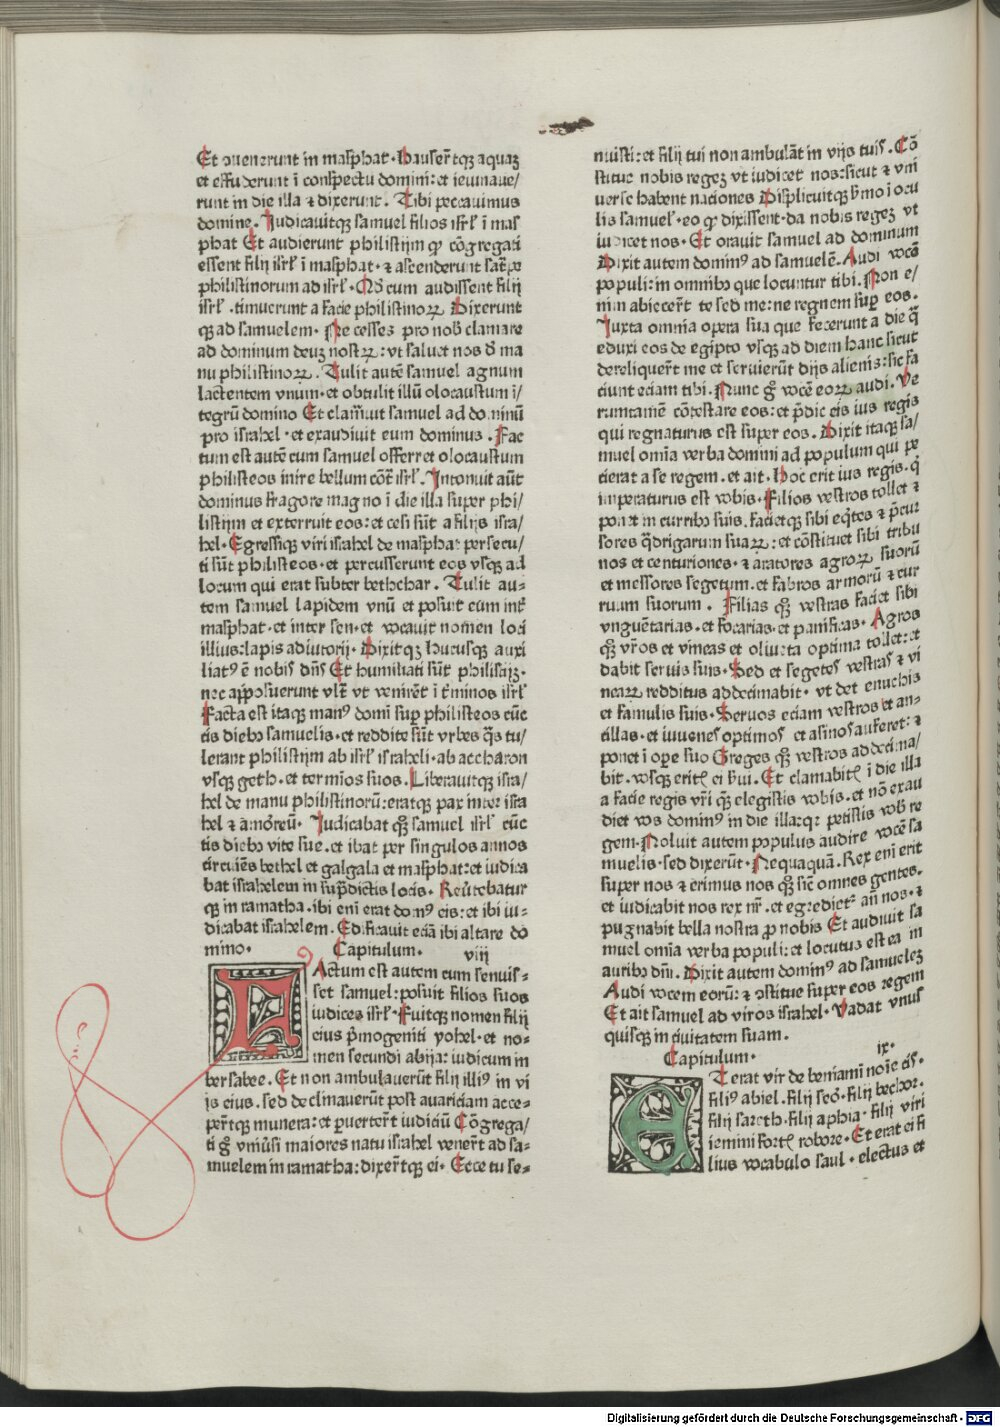 Et ɔuenerunt in masphat. Hauserūtqꝫ aquaꝫ
et effuderunt ī conspectu domini: et ieiunaue/
runt in die illa ⁊ dixerunt. Tibi peccauimus
domine. Judicauitqꝫ samuel filios isrł ī mas
phat Et audierunt philistijm qꝙ cōgregati
essent filij isrł ī masphat. ⁊ ascenderunt satᵃpe
philistinorum ad isrł. Qd̄ cum audissent filij
isrł. timuerunt a facie philistinoꝝ Dixerunt
qꝫ ad samuelem. Ne cesses pro nob̄ clamare
ad dominum deuꝫ nostꝝ: vt saluet nos d̄ ma
nu philistinoꝝ. Tulit autē samuel agnum
lactentem vnum. et obtulit illū olocaustum ī/
tegrū domino Et clamauit samuel ad dominū
pro israhel. et exaudiuit eum dominus. Fac
tum est autē cum samuel offerret olocaustum
philisteos inire bellum cōtᵃ isrł. Intonuit aūt
dominus fragore magno ī die illa super phi/
listijm et exterruit eos: et cesi sūt a filijs isra/
hel. Egressiqꝫ viri israhel de masphat persecu/
ti sūt philisteos. et percusserunt eos vsqꝫ ad
locum qui erat subter bethchar. Tulit au=
tem samuel lapidem vnū et posuit eum intᵉ
masphat. et inter sen. et vocauit nomen loci
illius: lapis adiutorij. Dixitqꝫ hucusqꝫ auxi
liatꝰ ē nobis dn̄s Et humiliati sūt philistijꝫ.
nec apposuerunt vltᵃ vt venirēt ī tᵉminos isrł
Facta est itaqꝫ manꝰ domī sup̄ philisteos cūc
tis diebꝫ samuelis. et reddite sūt vrbes qᵃs tu/
lerant philistijm ab isrł israheli. ab accharon
vsqꝫ geth. et termīos suos. Liberauitqꝫ isra/
hel de manu philistinorū: eratqꝫ pax inter isra
hel ⁊ amōreū. Judicabat qꝫ samuel isrł cūc
tis diebꝫ vite sue. et ibat per singulos annos
circuiēs bethel et galgala et masphat: et iudica
bat israhelem in sup̄dictis locis. Reūtebatur
qꝫ in ramatha. ibi enī erat domꝰ eis: et ibi iu=
dicabat israhelem. Edificauit eciā ibi altare do
mino. Capitulum. viij
FActum est autem cum senuis=
set samuel: posuit filios suos
iudices isrł. Fuitqꝫ nomen filij
eius pᵢmogeniti yohel. et no=
men secundi abija: iudicum in
bersabee. Et non ambulauerūt filij illiꝰ in vi
is eius. sed declinauerūt post auariciam acce=
per̄tqꝫ munera: et ꝑuerter̄t iudiciū Cōgrega/
ti gᵒ vniūsi maiores natu israhel vener̄t ad sa=
muelem in ramatha: dixer̄tqꝫ ei. Ecce tu se=
nuisti: et filij tui non ambulāt in vijs tuis. Cō
stitue nobis regeꝫ vt iudicet nos: sicut ⁊ vni
uerse habent naciones Displicuitqꝫ sᵉmo ī ocu
lis samuelˢ. eo qꝙ dixissent. da nobis regeꝫ vt
iudicet nos. Et orauit samuel ad dominum
Dixit autem dominꝰ ad samuelē. Audi vocē
populi: in omnibꝫ que locuntur tibi. Non e/
nim abiecer̄t te sed me: ne regnem sup̄ eos.
Juxta omnia opera sua que fecerunt a die qᵃ
eduxi eos de egipto vsqꝫ ad diem hanc sicut
dereliquer̄t me et seruierūt dijs alienis: sic fa
ciunt eciam tibi. Nunc gᵒ vocē eoꝝ audi. Ve
rumtamē cōtestare eos: et p̄dic eis ius regis
qui regnaturus est super eos. Dixit itaqꝫ sa/
muel omīa verba domini ad populum qui pe
tierat a se regem. et ait. Hoc erit ius regis. qᵢ
imperaturus est vobis. Filios vestros tollet ⁊
ponet in curribꝫ suis. Facietqꝫ sibi eqᵢtes ⁊ p̄cur
sores qᵃdrigarum suaꝝ: et cōstituet sibi tribu
nos et centuriones. ⁊ aratores agroꝝ suorū
et messores segetum. et fabros armorū ⁊ cur
ruum suorum. Filias qꝫ vestras faciet sibi
vnguētarias. et focarias. et panificas. Agros
qꝫ vr̄os et vineas et oliueta optima tollet: et
dabit seruis suis. Sed et segetes vestras ⁊ vi
neaꝝ redditus addecimabit. vt det enuchis
et famulis suis. Seruos eciam vestros et an=
cillas. et iuuenes optimos et asinos auferet: ⁊
ponet ī ope suo Greges qꝫ vestros addecima/
bit. vosqꝫ eritꝭ ei sᵉui. Et clamabitꝭ ī die illa
a facie regis vr̄i qᵉꝫ elegistis vobis. et nō exau
diet vos dominꝰ in die illa: qꝛ petistis vob̄ re
gem. Noluit autem populus audire vocē sa
muelis. sed dixerūt. Nequaquā. Rex enī erit
super nos ⁊ erimus nos qꝫ sic̄ omnes gentes.
et iudicabit nos rex nr̄. et egredietᵘʳ an̄ nos. ⁊
pugnabit bella nostra ꝓ nobis Et audiuit sa
muel omīa verba populi: et locutus est ea in
auribꝫ dn̄i. Dixit autem dominꝰ ad samueleꝫ
Audi vocem eorū: ⁊ ɔstitue super eos regem
Et ait samuel ad viros israhel. Vadat vnus
quisqꝫ in ciuitatem suam.
Capitulum. ix.
ETerat vir de beniamī noīe cis.
filiꝰ abiel. filij seor. filij bechor.
filij sareth. filij aphia. filij viri
iemini fortꝭ robore. Et erat ei fi
lius vocabulo saul. electus et
Digitalisierung gefördert durch die Deutsche Forschungsgemeinschaft - DFG